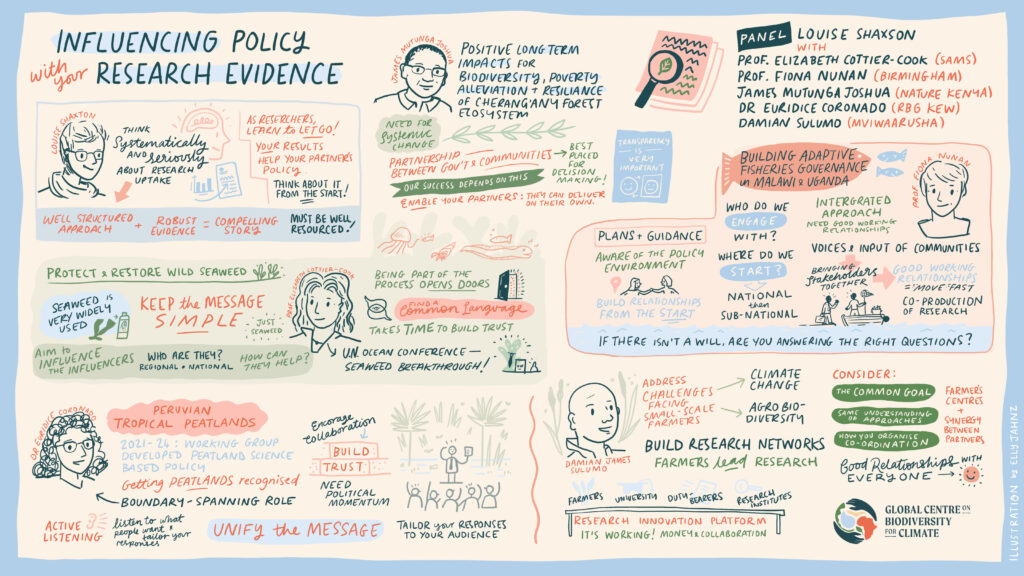 INFLUENCING POLICY
with your RESEARCH EVIDENCE
LOUISE SHAXTON
THINK
Systematically
AND seriously
ABOUT RESEARCH
UPTAKE
AS RESEARCHERS,
LEARN to LET GO!
YOUR RESULTS
HELP YOUR PARTNER'S
POLICY
THINK ABOUT IT
FROM THE START!
WELL STRUCTURED
APPROACH
+
ROBUST
EVIDENCE
=
COMPELLING
STORY
MUST BE WELL
RESOURCED!
JAMES MUTUNGA JOSHUA
POSITIVE LONG TERM
IMPACTS FOR
BIODIVERSITY, POVERTY
ALLEVIATION + RESILIANCE
OF CHERANGANY FOREST
ECOSYSTEM
NEED FOR
Systemic
CHANGE
PARTNERSHIP
BETWEEN GOV'T & COMMUNITIES
BEST
PLACED FOR
DECISION
MAKING!
OUR SUCCESS DEPENDS ON THIS
ENABLE YOUR PARTNERS: THEY CAN DELIVER
ON THEIR OWN.
TRANSPARENCY
IS
VERY
IMPORTANT
PANEL LOUISE SHAXSON
WITH
PROF. ELIZABETH COTTIER-COOK (SAMS)
PROF. FIONA NUNAN (BIRMINGHAM)
JAMES MUTUNGA JOSHUA (NATURE KENYA)
DR EURIDICE CORONADO (RBG KEW)
DAMIAN SULUMO (MVIWAARUSHA)
BUILDING ADAPTIVE
FISHERIES GOVERNANCE
IN MALAWI & UGANDA
PROF. FIONA NUNAN
WHO DO WE
ENGAGE
WITH?
WHERE DO WE
START?
NATIONAL
than
SUB-NATIONAL
INTERGRATED
APPROACH
NEED GOOD WORKING
RELATIONSHIPS
VOICES & INPUT OF COMMUNITIES
BRINGING
Stakeholders
TOGETHER
GOOD WORKING
RELATIONSHIPS
= 'MOVE FAST'
CO-PRODUCTION
OF RESEARCH
PLANS + GUIDANCE
AWARE OF THE POLICY
ENVIRONMENT
BUILD RELATIONSHIPS
FROM THE START
IF THERE ISN'T A WILL, ARE YOU ANSWERING THE RIGHT QUESTIONS?
PROTECT & RESTORE WILD SEAWEED
SEAWEED IS
VERY WIDELY
USED
KEEP the MESSAGE
SIMPLE
JUST
SEAWEED
PROF. ELIZABETH COTTIER-COOK
BEING PART OF THE
PROCESS OPENS DOORS
FIND A
Common Language
TAKES TIME TO BUILD TRUST
U.N. OCEAN CONFERENCE —
SEAWEED BREAKTHROUGH!
AIM to
INFLUENCE
THE INFLUENCERS
WHO ARE THEY?
REGIONAL + NATIONAL
HOW CAN
THEY HELP?
DR EURIDICE CORONADO
PERUVIAN
TROPICAL PEATLANDS
2021-24: WORKING GROUP
DEVELOPED PEATLAND SCIENCE
BASED POLICY
Getting PEATLANDS recognised
BOUNDARY-SPANNING ROLE
ACTIVE
LISTENING
listen to what
people want &
tailor your
responses
UNIFY the MESSAGE
Encorage
Collaboration
BUILD
TRUST
NEED
POLITICAL
MOMENTUM
TAILOR your RESPONSES
TO YOUR AUDIENCE
DAMIAN JAMES
SULUMO
ADDRESS
CHALLENGES
FACING
SMALL-SCALE
FARMERS
CLIMATE
CHANGE
AGRO BIO-
DIVERSITY
BUILD RESEARCH NETWORKS
FARMERS lead RESEARCH
FARMERS
UNIVERSITY
DUTY-BEARERS
RESEARCH
INSTITUTES
RESEARCH INNOVATION PLATFORM
IT'S WORKING! MONEY & COLLABORATION
CONSIDER:
THE COMMON GOAL
SAME UNDERSTANDING
OF APPROACHES
HOW YOU ORGANISE
CO-ORDINATION
FARMER'S
CENTRES
+
SYNERGY
BETWEEN
PARTNERS
Good Relationships WITH
EVERYONE
GLOBAL CENTRE ON
BIODIVERSITY
FOR CLIMATE
ILLUSTRATION by ELLY JAHNZ